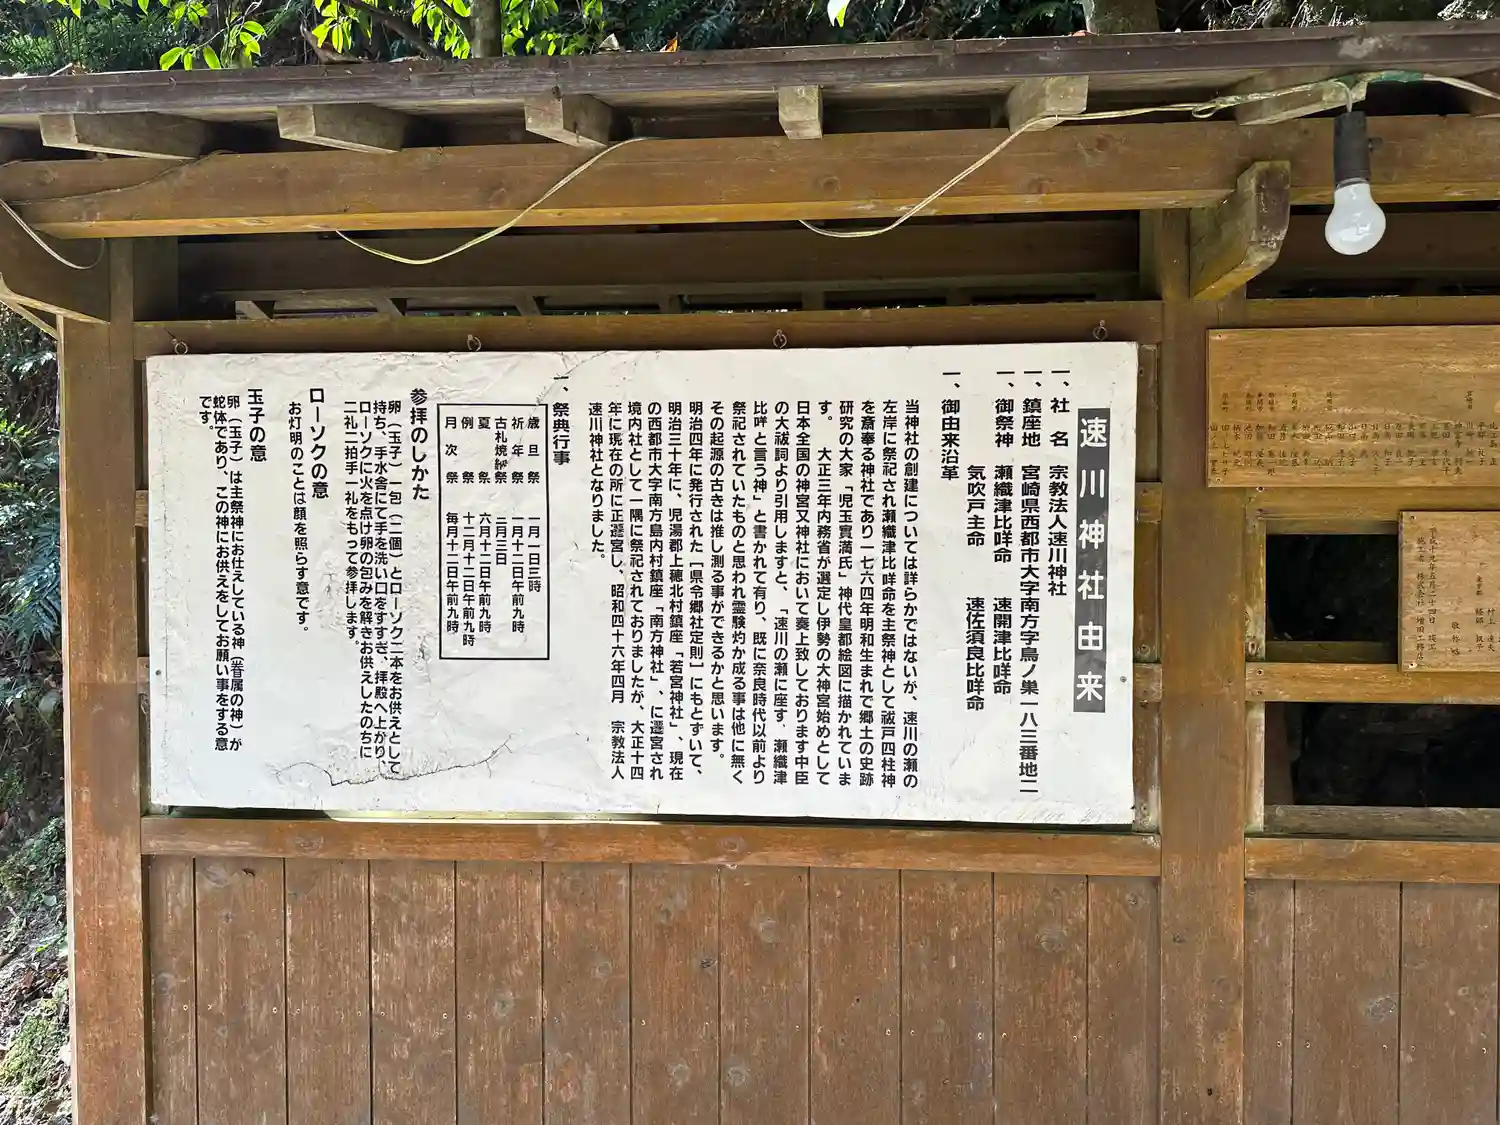 速川神社由来
一、社　名　宗教法人速川神社
一、鎮座地　宮崎県西都市大字南方字鳥ノ巣一八三番地二
一、御祭神　瀬織津比咩命　速開津比咩命
気吹戸主命　速佐須良比咩命
一、御由来沿革
当神社の創建については詳らかではないが、速川の瀬の
左岸に祭祀され瀬織津比咩命を主祭神として祓戸四柱神
を斎奉る神社であり一七六四年明和生まれで郷土の史跡
研究の大家「児玉實満氏」神代皇都絵図に描かれていま
す。　大正三年内務省が選定し伊勢の大神宮始めとして
日本全国の神宮又神社において奏上致しております中臣
の大祓詞より引用しますと、「速川の瀬に座す，瀬織津
比咩と言う神」と書かれて有り、既に奈良時代以前より
祭祀されていたものと思われ霊験灼か成る事は他に無く
その起源の古きは推し測る事ができるかと思います。
明治四年に発行された［県令郷社定則］にもとずいて、
明治三十年に、児湯郡上穂北村鎮座「若宮神社」、現在
の西都市大字南方島内村鎮座「南方神社」、に遷宮され
境内社として一隅に祭祀されておりましたが、大正十四
年に現在の所に正遷宮し、昭和四十六年四月　宗教法人
速川神社となりました。
一、祭典行事
歳旦祭　一月一日三時
祈年祭　一月十二日午前九時
古札焼納祭　二月三日
夏　祭　六月十二日午前九時
例　祭　十二月十二日午前九時
月次祭　毎月十二日午前九時
参拝のしかた
卵（玉子）一包（二個）とローソク二本をお供えとして
持ち、手水舎にて手を洗い口をすすぎ、拝殿へ上がり、
ローソクに火を点け卵の包みを解きお供えしたのちに
二礼二拍手一礼をもって参拝します。
ローソクの意
お灯明のことは顔を照らす意です。
玉子の意
卵（玉子）は主祭神にお仕えしている神（眷属の神）が
蛇体であり、この神にお供えをしてお願い事をする意
です。